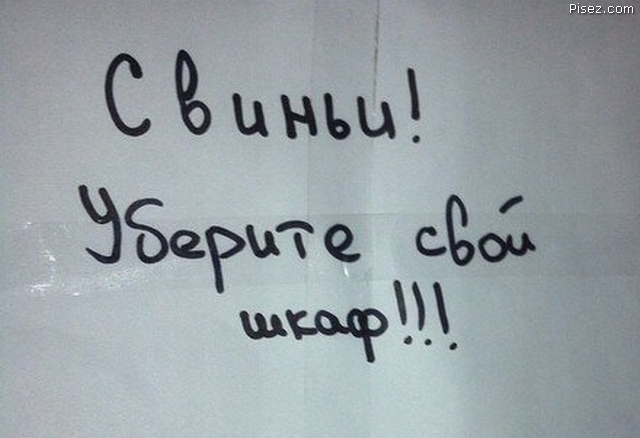 Pisez.com
Свиньи!
Уберите свой
шкаф!!!